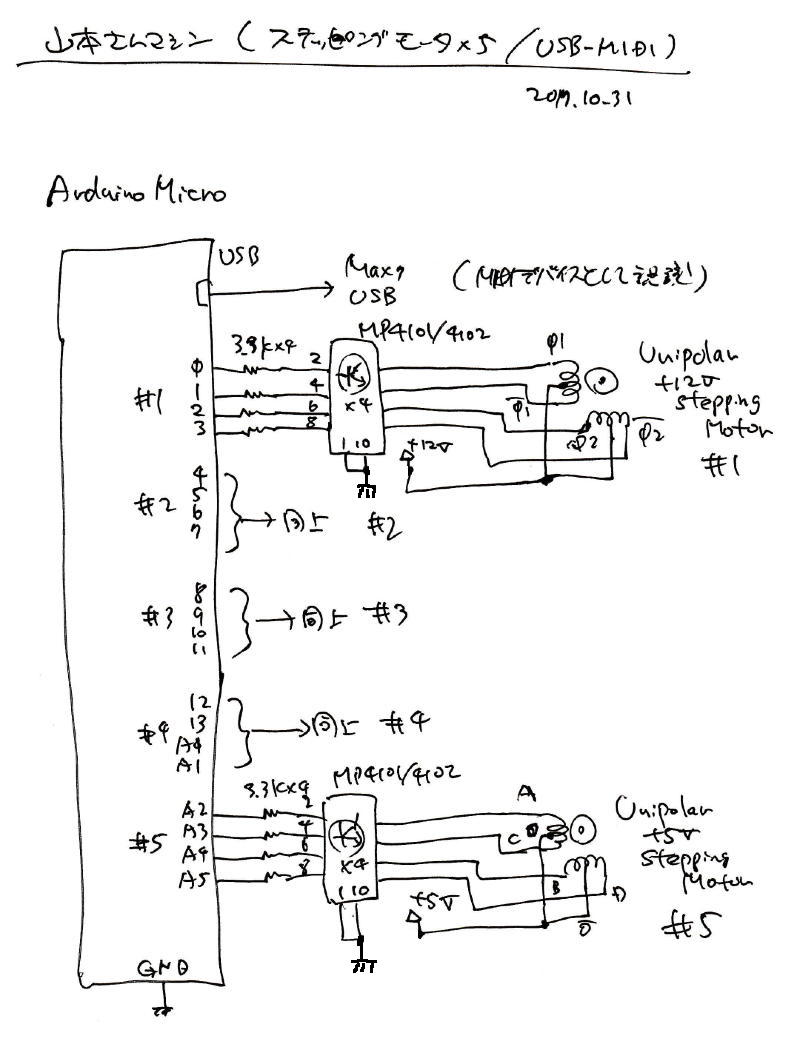 山本さんマシン (ステッピングモータ×5 / USB-MIDI)
10-31
Arduino Micro
USB
USB
(MIDIデバイスとして認識!)
MP4101/4102
0
1
2
3
#1
2
4
6
8
×4
1 10
+12V
φ1
φ1
φ2
φ2
Unipolar
+12V
Stepping
Motor
#1
#2
4
5
6
7
→ 同上 #2
#3
8
9
10
11
→ 同上 #3
#4
12
13
A1
→ 同上 #4
MP4101/4102
#5
A2
A3
A4
A5
3.3k×4
2
4
6
8
×4
1 10
+5V
A
C
B
D
Unipolar
+5V
Stepping
Motor
#5
GND